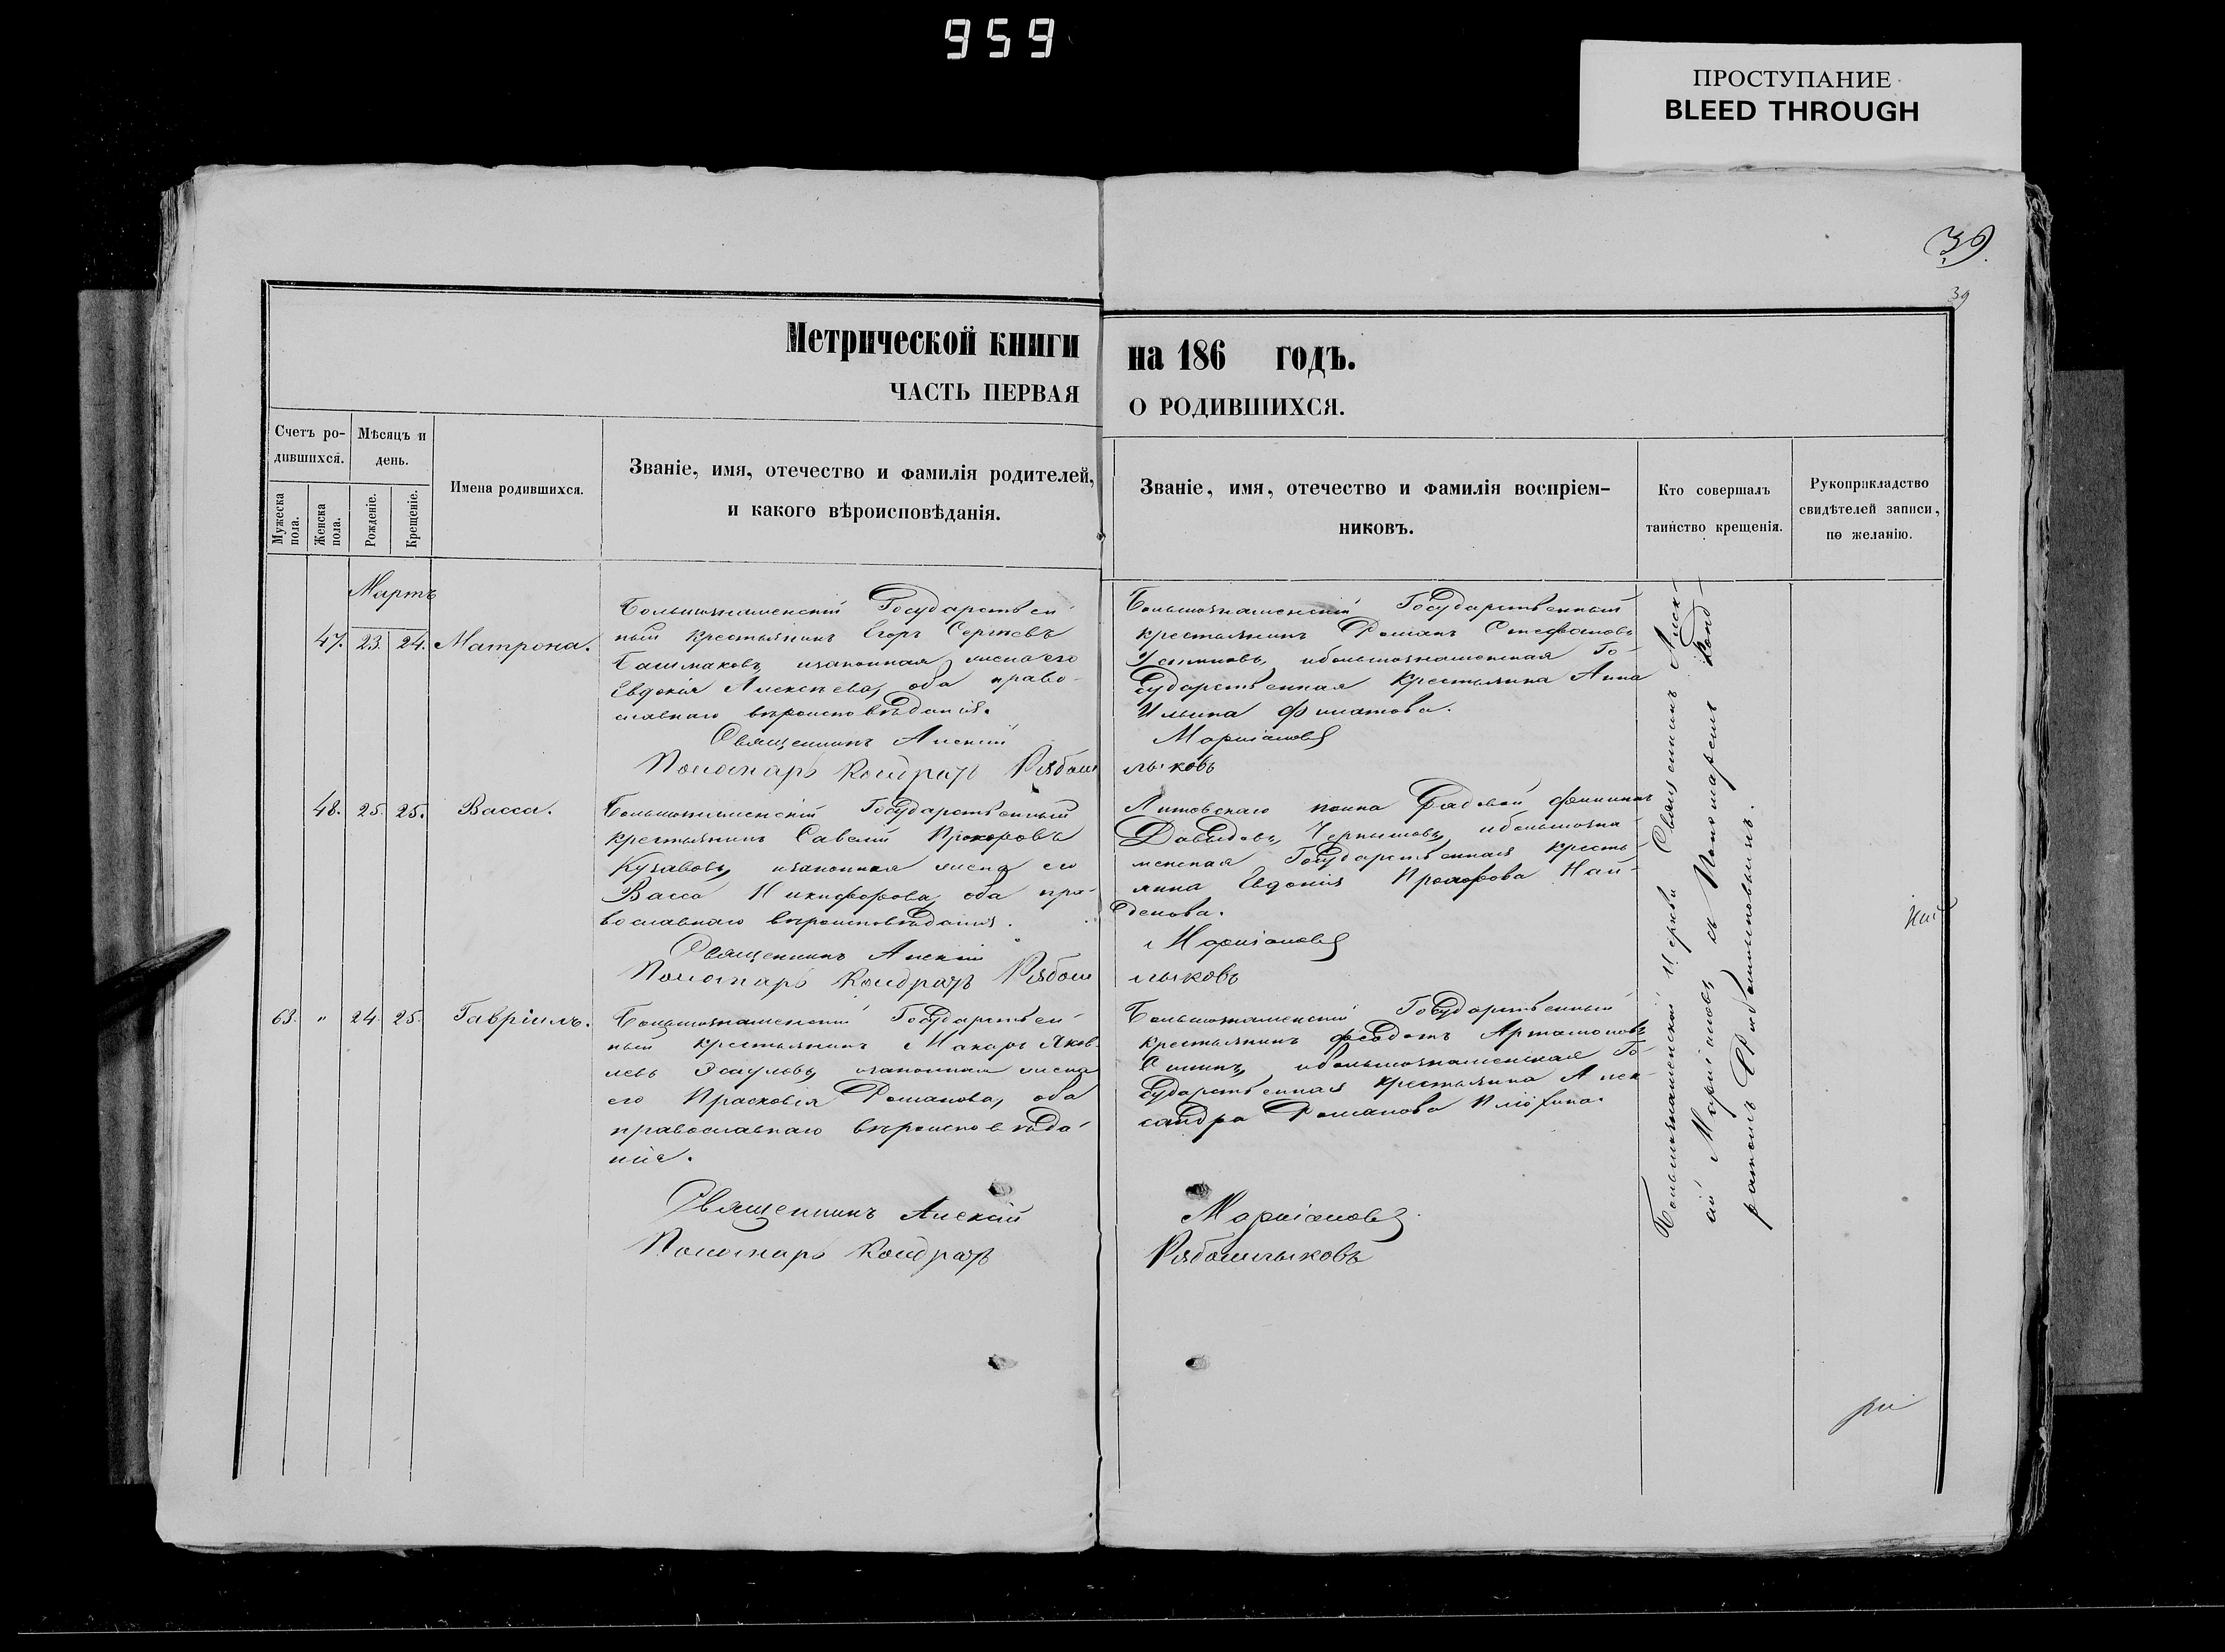 959
ПРОСТУПАНИЕ
BLEED THROUGH
39.
39
Метрической книги на 186 годъ.
ЧАСТЬ ПЕРВАЯ О РОДИВШИХСЯ.
Счетъ ро-
дившихся.
Мужеска
пола.
Женска
пола.
Мѣсяцъ и
день.
Рожденіе.
Крещеніе.
Имена родившихся.
Званіе, имя, отечество и фамилія родителей,
и какого вѣроисповѣданія.
Званіе, имя, отечество и фамилія воспріем-
никовъ.
Кто совершалъ
таинство крещенія.
Рукоприкладство
свидѣтелей записи,
по желанію.
Мартъ
47. 23. 24. Матрона.
Большознаменскій Государствен-
ный крестьянинъ Егоръ Сергѣевъ
Башмаковъ, изаконная жена его
Евдокія Алексѣева, оба право-
славнаго вѣроисповѣданія.
Священникъ Алексій
Пономарь Кондратъ Рябош
Большознаменскій Государственный
крестьянинъ Романъ Стефановъ
Устиновъ, ибольшознаменская Го-
сударственная Крестьянка Анна
Ильина Филатова.
Маркіановъ
лыковъ
48. 25. 25. Васса.
Большознаменскій Государственный
крестьянинъ Савелій Прохоровъ
изаконная жена его
Васса Никифорова, оба пра-
вославнаго вѣроисповѣданія.
Священникъ Алексій
Пономарь Кондратъ Рябош
Литовскаго полка Рядовой Филиппъ
Давыдовъ Чернышовъ, ибольшозна-
менская Государственная кресть-
янка Евдокія Прохорова Най-
денова.
Маркіановъ
лыковъ
63. " 24. 25. Гавріилъ.
Большознаменскій Государствен-
ный крестьянинъ Макаръ Яков-
левъ Эсауловъ, изаконная жена
его Прасковья Романова, оба
православнаго вѣроисповѣда-
нія.
Священникъ Алексій
Пономарь Кондратъ
Большознаменскій Государственный
крестьянинъ Феодотъ Артамоновъ
ибольшознаменская Го-
сударственная крестьянка Алек-
сандра Романова Илюхина.
Маркіановъ
Рябошлыковъ
Большознаменской Церкви Священникъ Алек-
сій Маркіановъ съ Пономаремъ Конд-
ратомъ Рябошлыковымъ.